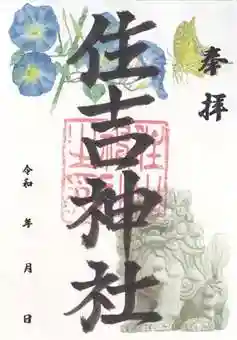 奉拝
住吉神社
令和 年 月 日